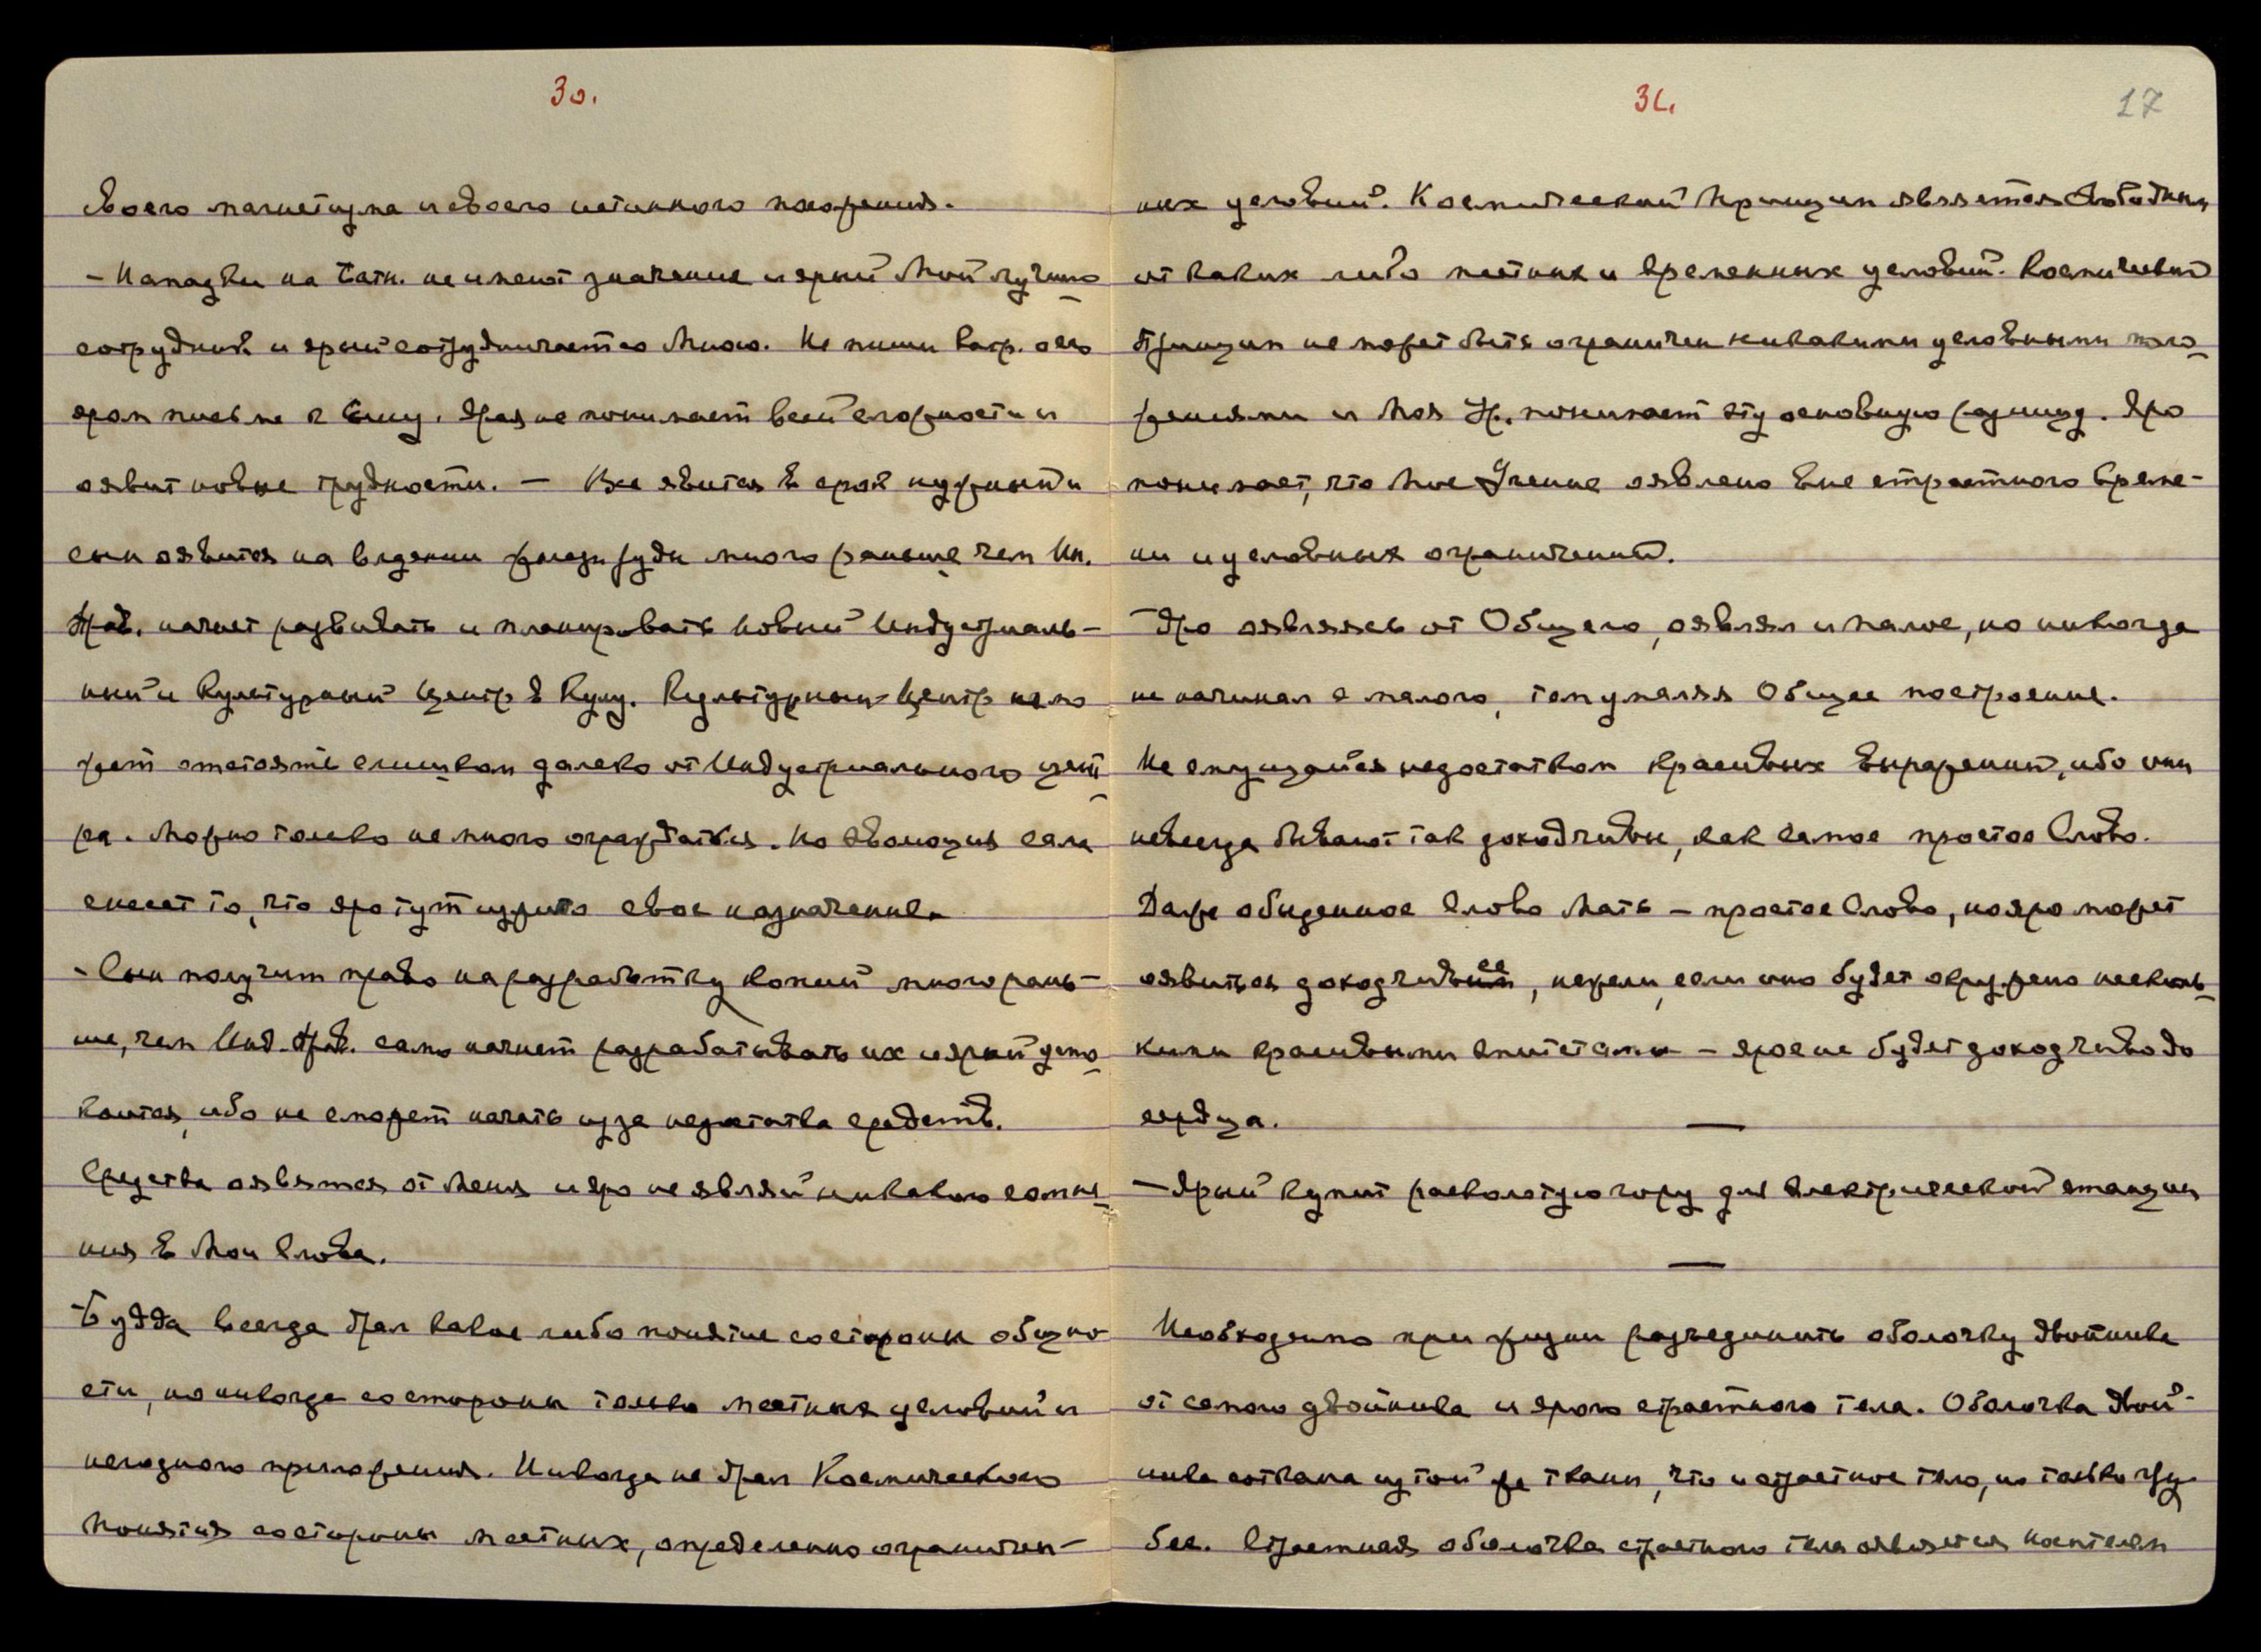 30.
своего магнетизма и своего истинного положения.
- Нападки на Сатп. не имеют значение и ярый Мой лучший
сотрудник и ярый сотрудничает со Мною. Не пиши
яром письме к Ему. Ярая не понимает всей сложности и
оявит новые трудности. — Все явится в срок нужный и
сын оявится на владении руды много раньше чем Ин.
Прав. начнет развивать и планировать Новый Индустриаль-
ный и Культурный Центр в Кулу. Культурный Центр не мо-
жет отстоять слишком далеко от Индустриального цент-
ра. Можно только немного ограждаться. Но эволюция сама
снесет то, что яро тут изжило свое назначение.
- Сын получит право на разработку копий много рань-
ше, чем Инд. Прав. само начнет разрабатывать их и ярый
ибо не сможет начать из за недостатка средств.
Средства оявятся от Меня и яро не являй никакого сомне-
ния в Мои Слова.
- Будда всегда брал какое либо понятие со стороны общно-
сти, но никогда со стороны только местных условий и
негодного приложения. Никогда не брал Космического
Понятия со стороны местных, определенно ограничен-
31.
17
ных условий. Космический Принцип является Свободным
от каких либо местных и временных условий. Космический
Принцип не может быть ограничен никакими условными поло-
жениями и Моя Ур. понимает эту основную разницу. Яро
понимает, что Мое Учение оявлено вне страстного време-
ни и условных ограничений.
- Яро оявляясь от Общего, оявлял и малое, но никогда
не начинал с малого, тем умаляя Общее построение.
Не смущайся недостатком красивых выражений, ибо они
не всегда бывают так доходчивы, как самое простое Слово.
Даже обыденное Слово Мать — простое Слово, но яро может
оявиться доходчивее, нежели если оно будет окружено несколь-
кими красивыми эпитетами — яро не будет доходчиво до
сердца.
- Ярый купит расколотую гору для Электрической станции
Необходимо при жизни разъединить оболочку двойника
от самого двойника и ярого страстного тела. Оболочка двой-
ника соткана из той же ткани, что и страстное тело, но только гру-
бее. Страстная оболочка страстного тела оявляется носителем